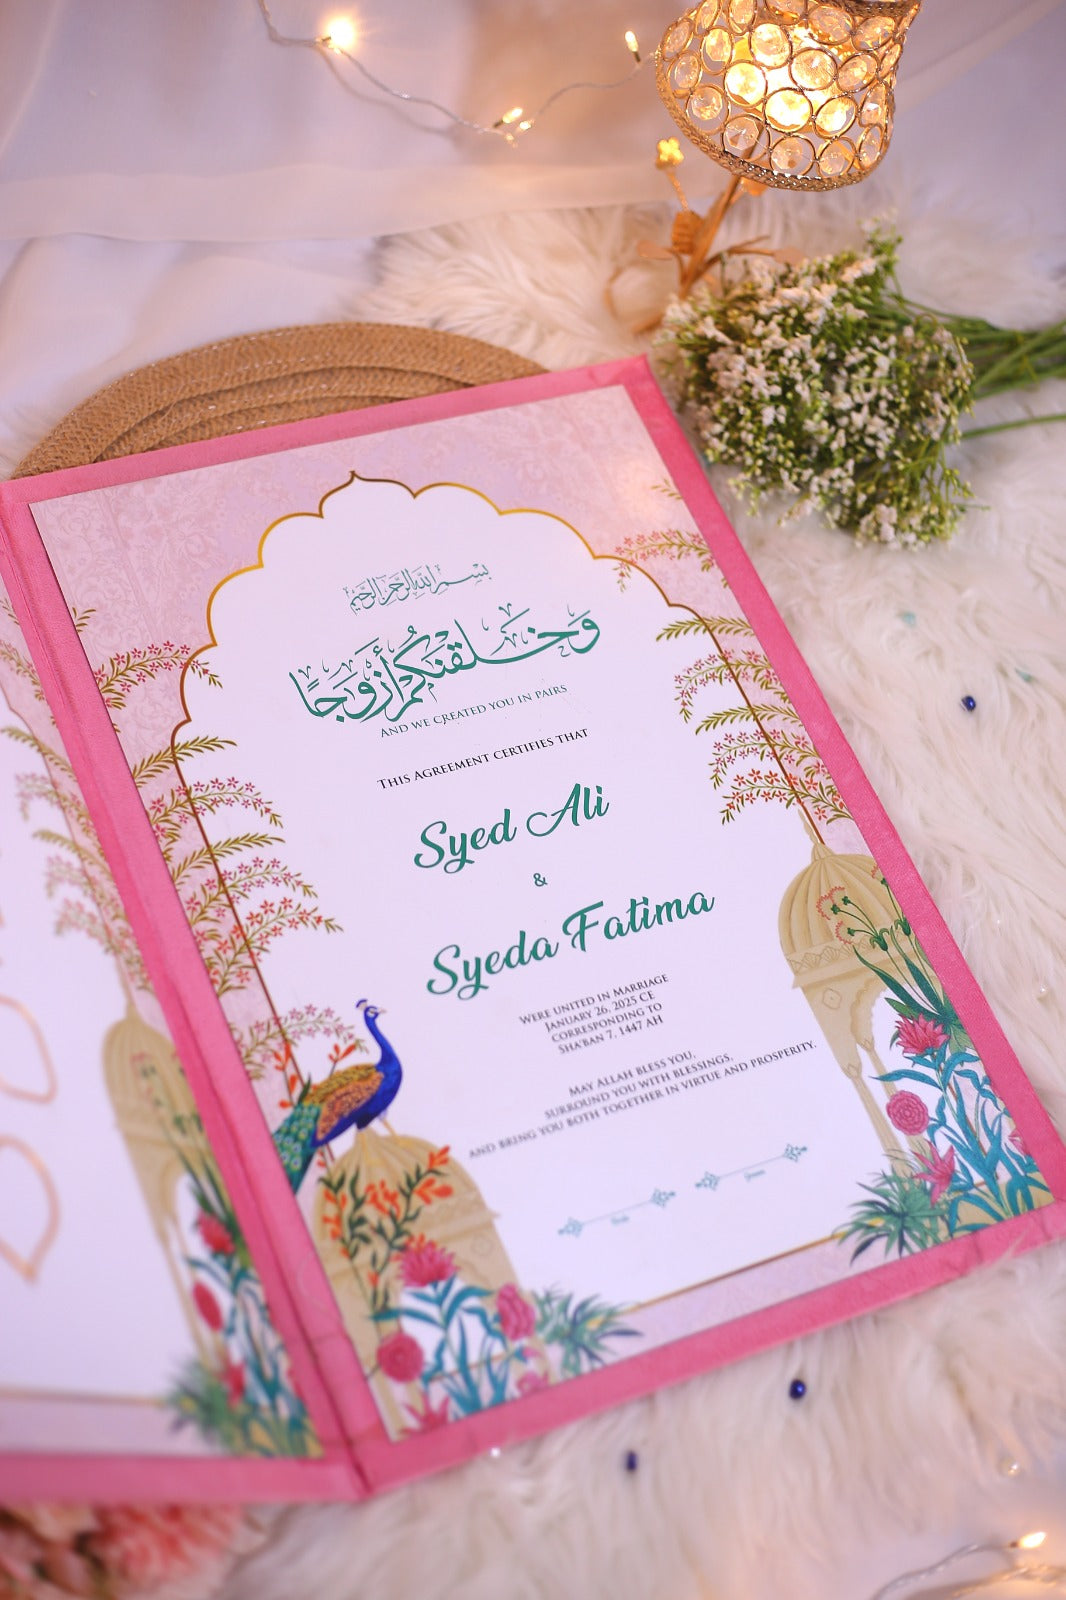 بسم الله الرحمن الرحيم
وَخَلَقْنَٰكُمْ أَزْوَٰجًا
AND WE CREATED YOU IN PAIRS
THIS AGREEMENT CERTIFIES THAT
Syed Ali
&
Syeda Fatima
WERE UNITED IN MARRIAGE
JANUARY 26, 2025 CE
CORRESPONDING TO
SHA'BAN 7, 1447 AH
MAY ALLAH BLESS YOU,
SURROUND YOU WITH BLESSINGS,
AND BRING YOU BOTH TOGETHER IN VIRTUE AND PROSPERITY.
Bride
Groom